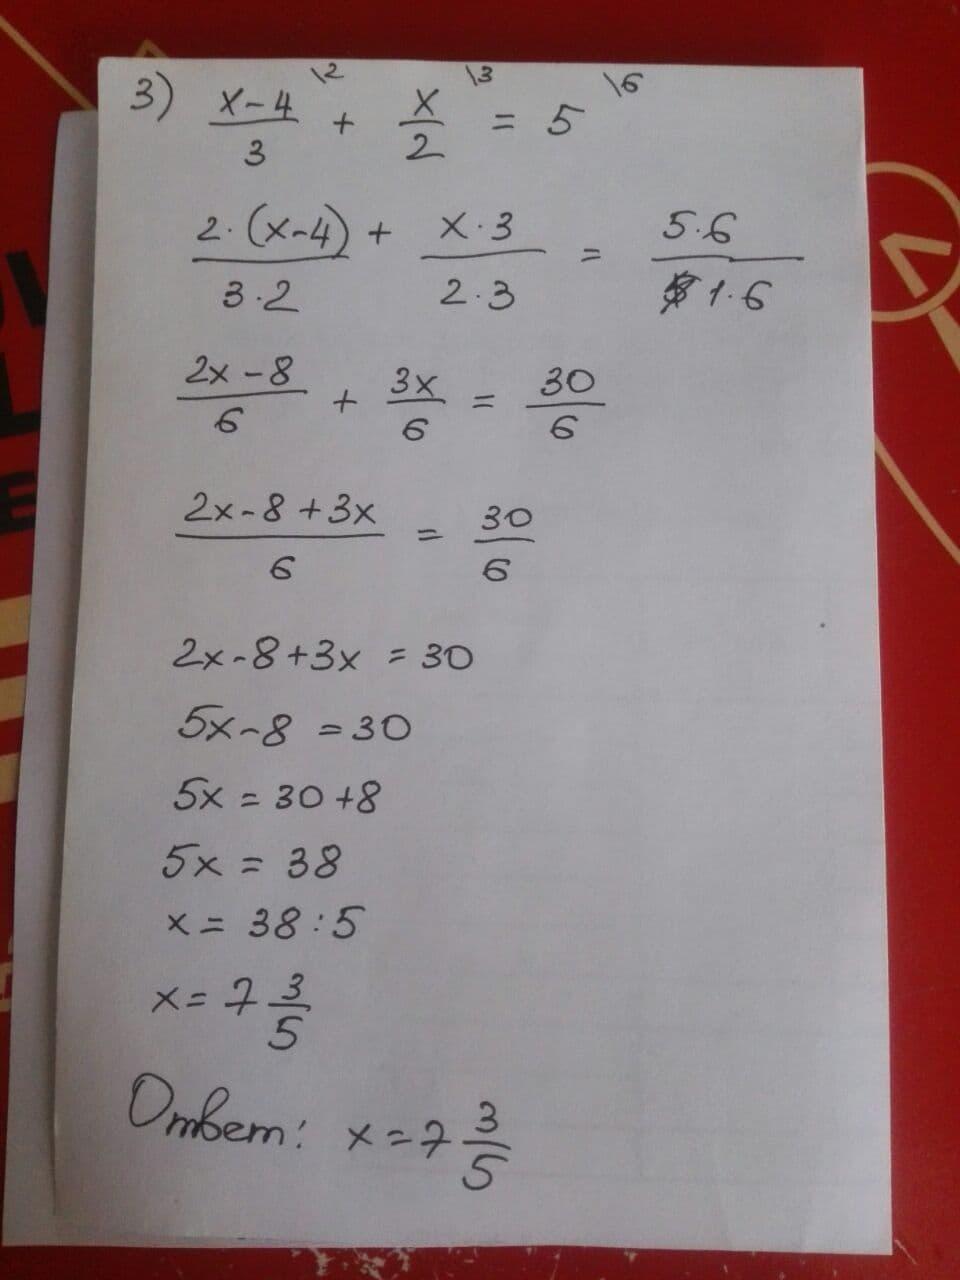 3) x-4/3 \2 + x/2 \3 = 5 \6
2·(x-4)/3·2 + x·3/2·3 = 5·6/1·6
2x-8/6 + 3x/6 = 30/6
2x-8+3x/6 = 30/6
2x-8+3x = 30
5x-8 = 30
5x = 30+8
5x = 38
x = 38:5
x = 7 3/5
Ответ: x = 7 3/5